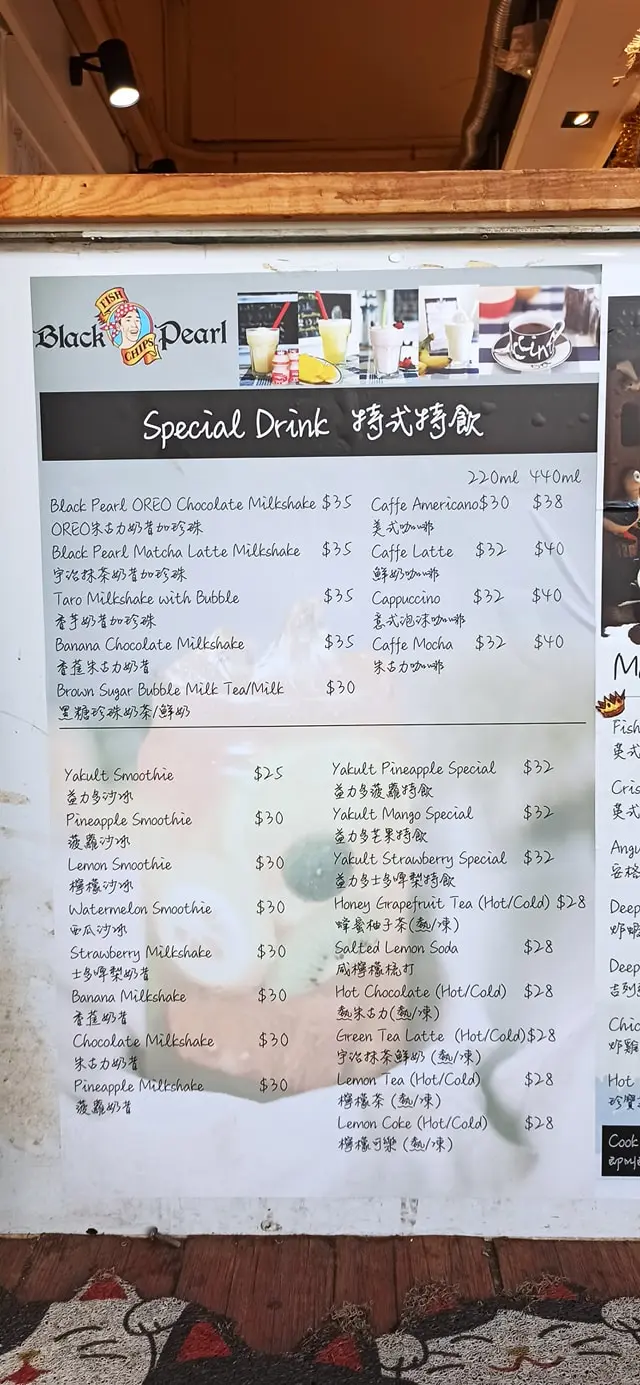 Black Pearl
FISH
CHIPS
Special Drink 特式特飲
220ml 440ml
Black Pearl OREO Chocolate Milkshake $35
OREO朱古力奶昔加珍珠
Black Pearl Matcha Latte Milkshake $35
宇治抹茶奶昔加珍珠
Taro Milkshake with Bubble $35
香芋奶昔加珍珠
Banana Chocolate Milkshake $35
香蕉朱古力奶昔
Brown Sugar Bubble Milk Tea/Milk $30
黑糖珍珠奶茶/鮮奶
Caffe Americano $30 $38
美式咖啡
Caffe Latte $32 $40
鮮奶咖啡
Cappuccino $32 $40
意式泡沫咖啡
Caffe Mocha $32 $40
朱古力咖啡
Yakult Smoothie $25
益力多沙冰
Pineapple Smoothie $30
菠蘿沙冰
Lemon Smoothie $30
檸檬沙冰
Watermelon Smoothie $30
西瓜沙冰
Strawberry Milkshake $30
士多啤梨奶昔
Banana Milkshake $30
香蕉奶昔
Chocolate Milkshake $30
朱古力奶昔
Pineapple Milkshake $30
菠蘿奶昔
Yakult Pineapple Special $32
益力多菠蘿特飲
Yakult Mango Special $32
益力多芒果特飲
Yakult Strawberry Special $32
益力多士多啤梨特飲
Honey Grapefruit Tea (Hot/Cold) $28
蜂蜜柚子茶(熱/凍)
Salted Lemon Soda $28
咸檸檬梳打
Hot Chocolate (Hot/Cold) $28
熱朱古力(熱/凍)
Green Tea Latte (Hot/Cold) $28
宇治抹茶鮮奶(熱/凍)
Lemon Tea (Hot/Cold) $28
檸檬茶(熱/凍)
Lemon Coke (Hot/Cold) $28
檸檬可樂(熱/凍)
Fish
英式
Cris
英式
Angu
安格
Deep
Deep
吉列
Chic
炸雞
Hot
珍寶
Cook